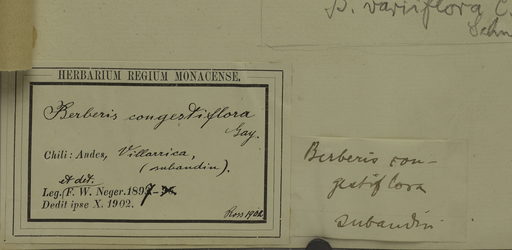 β. variiflora C.
Schn
HERBARIUM REGIUM MONACENSE.
Berberis congestiflora
Gay.
Chili: Andes, Villarrica,
(subandin).
et dit.
Leg. F. W. Neger. 1897
Dedit ipse X. 1902.
Ross 1902.
Berberis con-
gestiflora
subandin